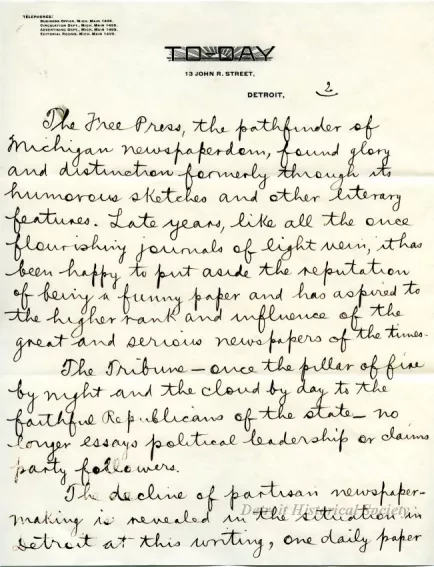 TELEPHONES:
BUSINESS OFFICE, MICH. MAIN 1459.
CIRCULATION DEPT., MICH. MAIN 1459.
ADVERTISING DEPT., MICH. MAIN 1459.
EDITORIAL ROOMS, MICH. MAIN 1459.
TO-DAY
13 JOHN R. STREET,
DETROIT, 2
The Free Press, the pathfinder of
Michigan newspaperdom, found glory
and distinction formerly through its
humorous sketches and other literary
features. Late years, like all the once
flourishing journals of light vein, it has
been happy to put aside the reputation
of being a funny paper and has aspired to
the higher rank and influence of the
great and serious newspapers of the times.
The Tribune — once the pillar of fire
by night and the cloud by day to the
faithful Republicans of the state — no
longer essays political leadership or claims
party followers.
The decline of partisan newspaper-
making is revealed in the situation in
Detroit at this writing, one daily paper
Detroit Historical Society